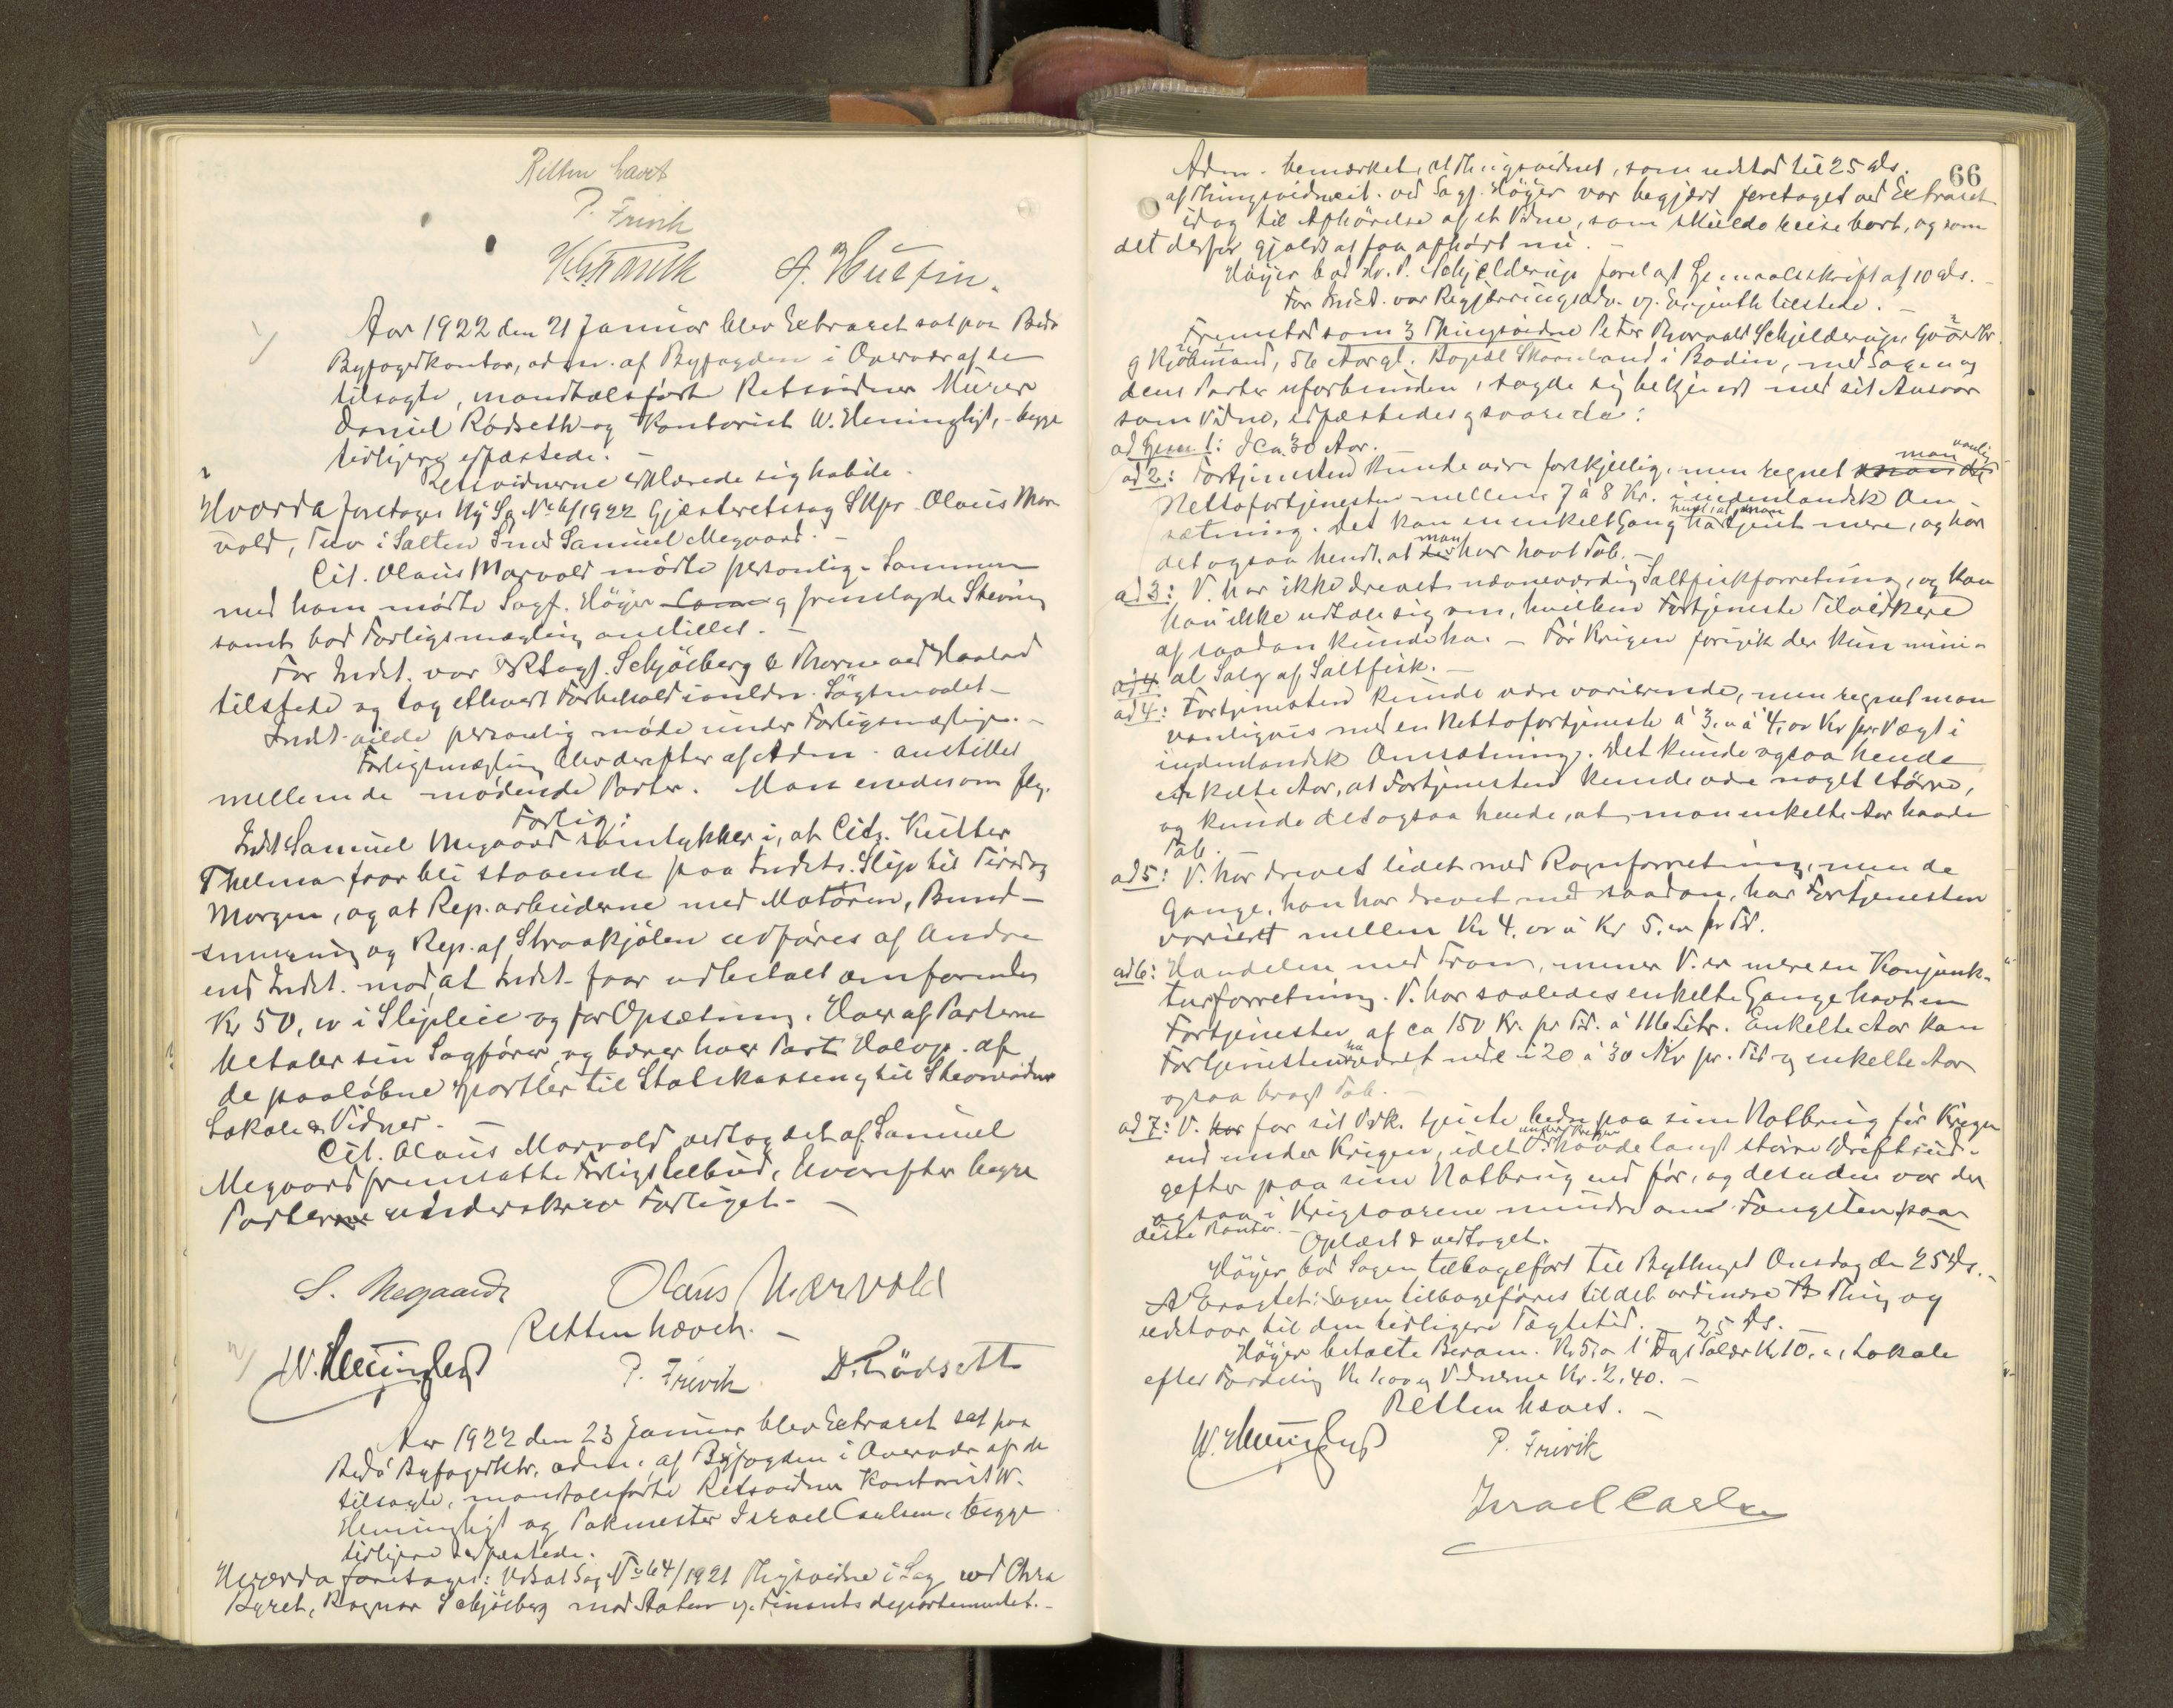 Retten hævet
P. Frivik
A. Hustin.
Aar 1922 den 21 Januar blev Extraret sat paa Bodø
Byfogedkontor, adm. af Byfogden i Overvær af de
tilsagte, mandtalsførte Retsvidner Murer
Daniel Rødseth og Kontorist W. Hemingligt, begge
tidligere edfæstede. –
Retsvidnerne erklærede sig habile.
Hvorda foretages Ny Sag No 6/1922 Gjæsteretssag Skpr. Olaus Mar-
vold, Tuv i Salten Samuel Megaard. –
Cit. Olaus Marvold mødte personlig. Sammen
med ham mødte Sagf. Høyer og fremlagde Stevning
samt bad Forligsmægling anstillet. –
For Indst. var ORSagf. Schjøsberg & Thorne ved
tilstede og tog ethvert Forbehold Søgsmaalet –
Indst. vilde personlig møde under Forligsmæglingen. –
Forligsmægling blev derefter af Adm. anstillet
mellem de mødende Parter. Man enedes om flg.
Forlig:
Indst Samuel Megaard samtykker i, at Citz. Kutter
Thelma faar bli staaende paa Indsts. Slip til Tirsdag
Morgen, og at Rep. arbeiderne med Motoren, Bund-
smurning og Rep. af Straakjølen udføres af Andre
end Indst. mod at Indst. faar udbetalt omforenede
Kr 50,00 i Slipleie og for Opsætning. Hver af Parterne
betaler sin Sagfører og bærer hver Part Halvp. af
de paaløbne Sportler til Statskassen og til Stevnevidner
Lokale & Vidner. –
Cit. Olaus Marvold vedtog det af Samuel
Megaard fremsatte Forligstilbud, hvorefter begge
Parterne underskrev Forliget. –
S. Megaard Olaus Marvold
Retten hævet. –
W. Hemingligt P. Frivik D. Rødseth
Aar 1922 den 23 Januar blev Extraret sat paa
Bodø Byfogedktr. adm. af Byfogden i Overvær af de
tilsagte, mandtalsførte Retsvidner Kontorist W.
Hemingligt og Pakmester Israel Carlsen, begge
tidligere edfæstede.
Hvorda foretages: Udsat Sag No 64/1921 Thingsvidne i Sag ved Chra
Byret, Ragnar Schjøsberg mod Staten v. Finantsdepartementet. –
66
Adm. bemærket, at Thingsvidnet, som udstod til 25 ds.
af Thingsvidnecit. ved Sagf. Høyer var begjært foretaget ved Extraret
idag til Afhørelse af et Vidne, som skulde reise bort, og som
det derfor gjaldt at faa afhørt nu. –
Høyer bad Hr. P. Schjelderup forelagt Gjenmælsskrift af 10 ds. –
For Indst. var Regjeringsadv. v. tilstede. –
Fremstod som 3 Thingsvidne Peter Thorvald Schjelderup, Gaardbr.
og Kjøbmand, 56 Aar gl. Bopæl Skavland i Bodin, med Sagen og
dens Parter uforbunden, sagde sig bekjendt med sit Ansvar
som Vidne, edfæstedes og svarede:
ad Gjenm. 1: I ca. 30 Aar.
ad 2: Fortjenesten kunde være forskjellig, men regnet man vanlig
Nettofortjenesten mellem 7 à 8 Kr. i indenlandsk Om-
sætning. Det kan en enkelt Gang hændt, at man ha tjent mere, og har
det ogsaa hendt, at man har havt Tab. –
ad 3: V. har ikke drevet nævneværdig Saltfiskforretning, og kan
han ikke udtale sig om, hvilken Fortjeneste Tilvirkere
af saadan kunde ha. – Før Krigen foregik der kun mini-
ad 4 al Salg af Saltfisk. –
ad 4: Fortjenesten kunde være varierende, men regnet man
vanligvis med en Nettofortjeneste à 3,00 à 4,00 Kr pr. Vægt i
indenlandsk Omsætning. Det kunde ogsaa hende
enkelte Aar, at Fortjenesten kunde være noget større,
og kunde det ogsaa hende, at man enkelte Aar havde
Tab.
ad 5: V. har drevet lidet med Rognforretning, men de
Gange, han har drevet med saadan, har Fortjenesten
varieret mellem Kr 4,00 à Kr 5,00 pr Td.
ad 6: Handelen med Tran, mener V. er mere en Konjunk-
turforretning. V. har saaledes enkelte Gange havt en
Fortjeneste af ca 150 Kr. pr Td. à 116 Litr. Enkelte Aar kan
Fortjenesten ha været nede i 20 à 30 Kr pr. Td og enkelte Aar
ogsaa bragt Tab. –
ad 7: V. har for sit Vdk. tjente bedre paa sine Notbrug før Krigen
end under Krigen, idet V. under Krigen havde langt større Driftsud-
gifter paa sine Notbrug end før, og desuden var der
ogsaa i Krigsaarene mindre om Fangsten paa
disse Kanter. – Oplæst & vedtaget.
Høyer bad Sagen tilbageført til Bythinget Onsdag den 25 ds. –
Eragtet: Sagen tilbageføres til det ordinære Thing og
udstaar til den tidligere Tægtetid. – 25 ds. –
Høyer betalte Beram. Kr. 5,00 1 Dags Salær Kr 10,00, Lokale
efter Fordeling Kr 1,00 og Vidnerne Kr. 2,40. –
Retten hævet. –
W. Hemingligt P. Frivik
Israel Carlsen